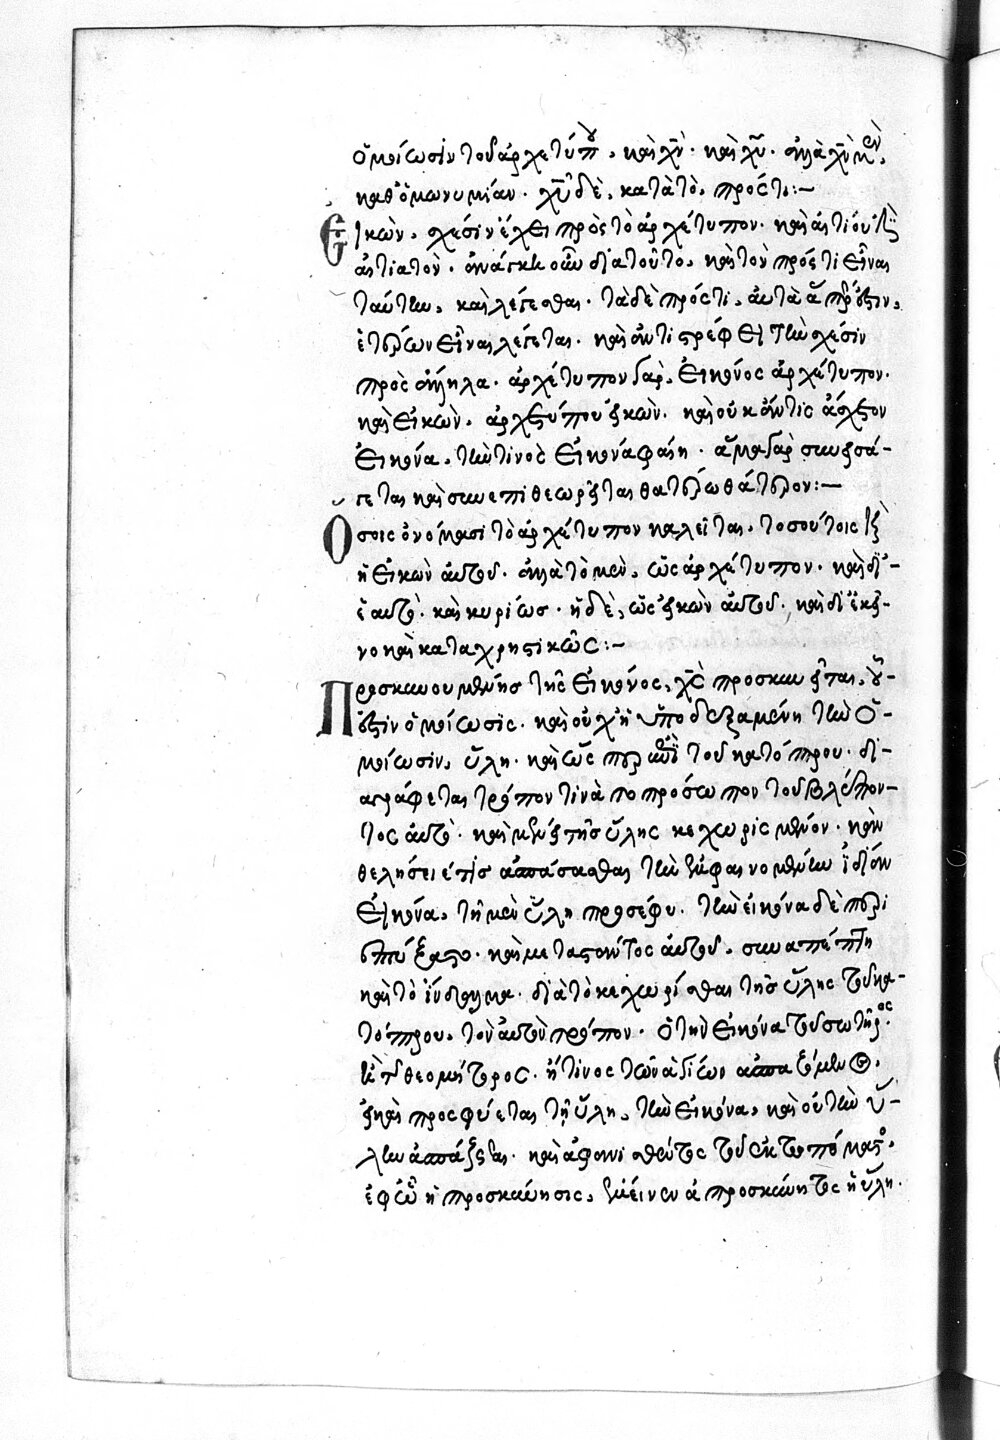 ὁμοίωσιν τοῦ ἀρχετύπου. καὶ χῦν· καὶ χῦ· ἀλλὰ χῦν μὲν,
καθ' ὁμωνυμίαν· χῦ δὲ, κατὰ τὸ, πρός τι:–
Εἰκὼν, σχέσιν ἔχει πρὸς τὸ ἀρχέτυπον· καὶ αἰτίου ἐξ
αἰτιατὸν· ἀνάγκη οὖν διὰ τοῦτο, καὶ τὸν πρός τι εἶναι
ταύτην, καὶ λέγεσθαι· τὰ δὲ πρός τι, αὐτὰ ἅπερ ἐστὶν,
ἑτέρων εἶναι λέγεται· καὶ ἀντιστρέφει τῆ σχέσιν
πρὸς ἄλληλα· ἀρχέτυπον γὰρ, εἰκόνος ἀρχέτυπον·
καὶ εἰκὼν, ἀρχετύπου εἰκών. καὶ οὐκ ἄν τις ἄσχετον
εἰκόνα, τὴν τινὸς εἰκόνα φαίη· ἅμα γὰρ συνεισά-
γεται καὶ συνεπιθεωρεῖται θατέρω θάτερον:–
Ὅσοις ὀνόμασι τὸ ἀρχέτυπον καλεῖται, τοσούτοις ἐξ
ἡ εἰκὼν αὐτοῦ· ἀλλὰ τὸ μὲν, ὡς ἀρχέτυπον· καὶ δι'
ἑαυτὸ· καὶ κυρίως· ἡ δὲ, ὡς εἰκὼν αὐτοῦ, καὶ δι' ἐκεῖ-
νο καὶ καταχρηστικῶς:–
Προσκυνουμένης τῆς εἰκόνος, χς προσκυνεῖται, οὗ
ἐστὶν ὁμοίωσις· καὶ οὐχ ἡ ὑποδεξαμένη τὴν ὁ-
μοίωσιν, ὕλη· καὶ ὡς περ ἐπὶ τοῦ κατόπρου· δι-
αγράφεται τρόπον τινὰ τὸ πρόσωπον τοῦ βλέπον-
τος αὐτὸ· καὶ μένει τῆς ὕλης κεχωρισμένον· κἂν
θελήσειέ τις ἀσπάσασθαι τὴν ἐμφαινομένην ἰδίαν
εἰκόνα, τῆ μὲν ὕλη προσέφυ. τὴν εἰκόνα δὲ περι
επτύξατο· καὶ μεταστάντος αὐτοῦ, συναπέπτη
καὶ τὸ ἴνδαλμα· διὰ τὸ κεχωρίσθαι τῆς ὕλης τοῦ κα-
τόπρου. τὸν αὐτὸν τρόπον· ὁ τὴν εἰκόνα τοῦ σωτῆρος.
καὶ τῆς θεομήτορος· ἤ τινος τῶν ἁγίων ἀσπαζόμενος,
εἰ καὶ προσφύεται τῆ ὕλη, τὴν εἰκόνα, καὶ οὐ τὴν ὕ-
λην ἀσπάζεται· καὶ ἀφανισθέντος τοῦ ἐκτυπώματος,
ἐφ' ὧ ἡ προσκύνησις, ἐμεινεν ἀπροσκύνητος ἡ ὕλη.